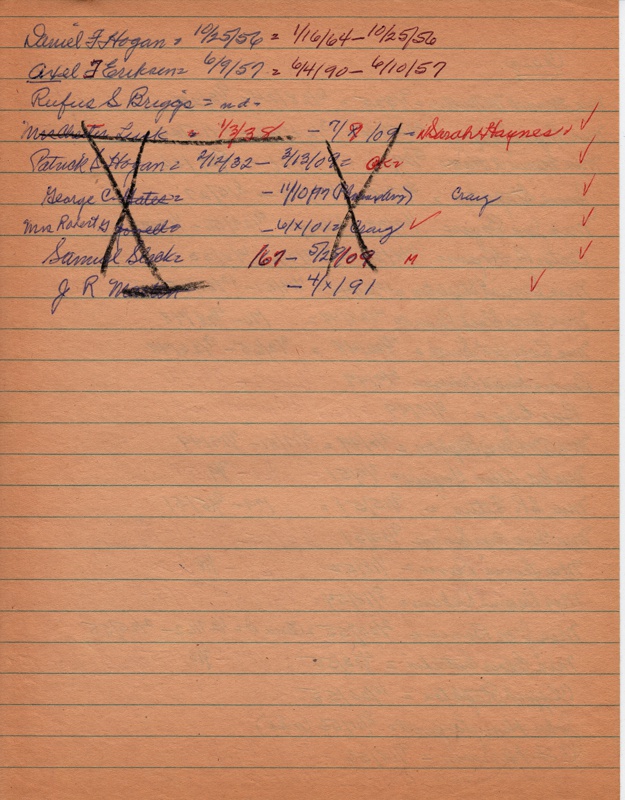 Daniel F Hogan = 10/25/56 = 1/16/64 - 10/25/56
Axel F Erikson = 6/9/57 = 6/4/90 - 6/10/57
Rufus S Briggs = n d -
Mrs Chester Lusk = 1/3/38 - 7/8/09 - "Sarah H Haynes" ✓
Patrick S Hogan = 2/12/32 - 3/13/09 = OK = ✓
George C Bates = - 11/10/97 Craig ✓
Mrs Robert G - 6/x/01 = Craig ✓ ✓
Samuel /67 - 5/29/09 M ✓
J R - 4/x/91 ✓